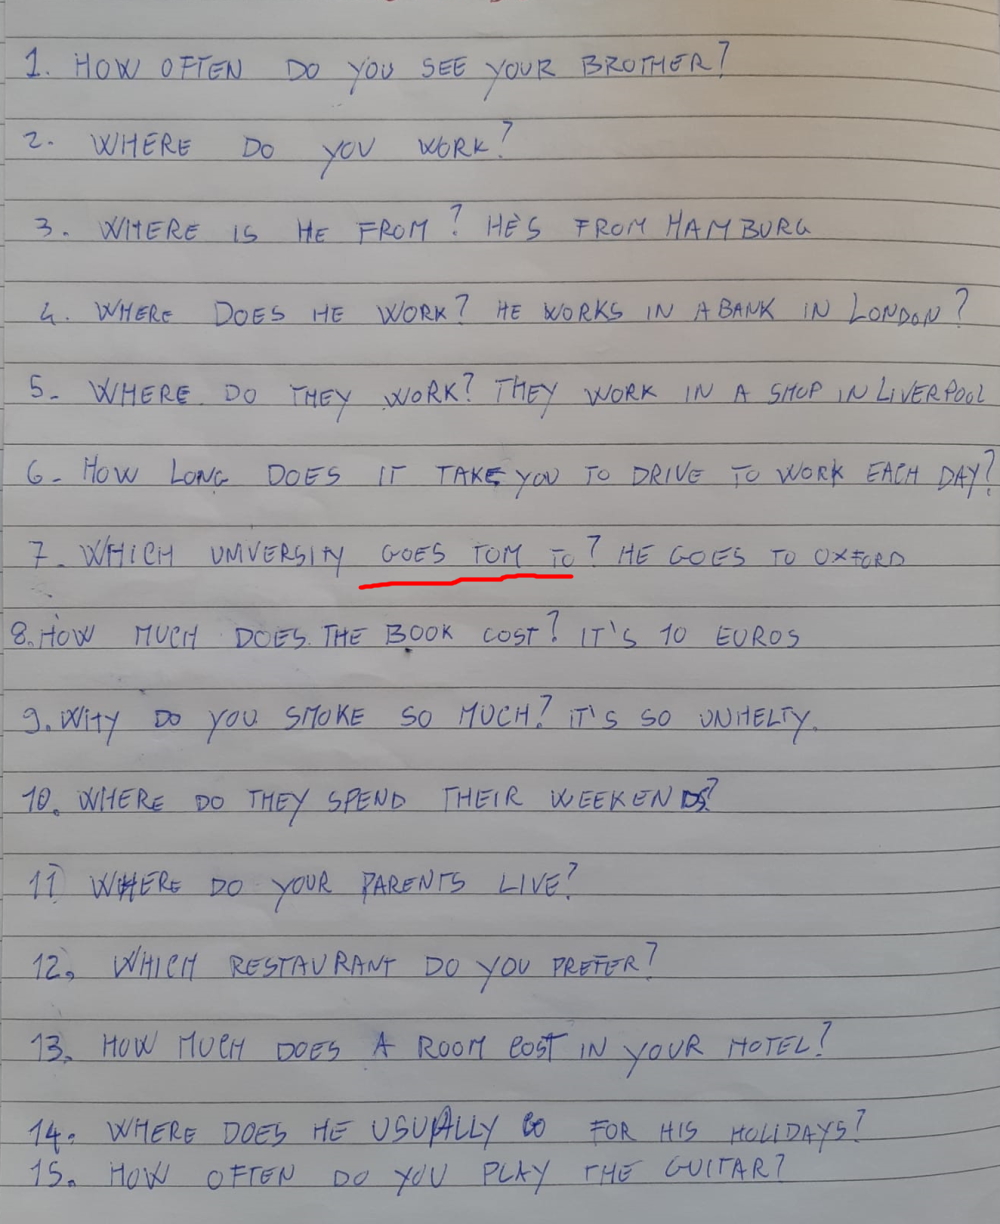 1. HOW OFTEN DO YOU SEE YOUR BROTHER?
2. WHERE DO YOU WORK?
3. WHERE IS HE FROM? HE'S FROM HAMBURG
4. WHERE DOES HE WORK? HE WORKS IN A BANK IN LONDON?
5. WHERE DO THEY WORK? THEY WORK IN A SHOP IN LIVERPOOL
6. HOW LONG DOES IT TAKE YOU TO DRIVE TO WORK EACH DAY?
7. WHICH UNIVERSITY GOES TOM TO? HE GOES TO OXFORD
8. HOW MUCH DOES THE BOOK COST? IT'S 10 EUROS
9. WHY DO YOU SMOKE SO MUCH? IT'S SO UNHELTY.
10. WHERE DO THEY SPEND THEIR WEEKENDS?
11 WHERE DO YOUR PARENTS LIVE?
12. WHICH RESTAURANT DO YOU PREFER?
13. HOW MUCH DOES A ROOM COST IN YOUR HOTEL?
14. WHERE DOES HE USUALLY GO FOR HIS HOLIDAYS?
15. HOW OFTEN DO YOU PLAY THE GUITAR?